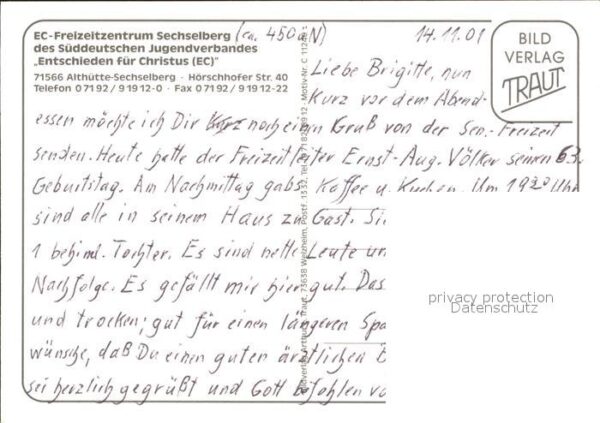 EC-Freizeitzentrum Sechselberg (ca. 450 üN)
des Süddeutschen Jugendverbandes
„Entschieden für Christus (EC)"
71566 Althütte-Sechselberg · Hörschhofer Str. 40
Telefon 0 71 92 / 9 19 12-0 · Fax 0 71 92 / 9 19 12-22
14.11.01
BILD
VERLAG
TRAUT
Liebe Brigitte, nun
kurz vor dem Abend-
essen möchte ich Dir noch einen Gruß von der Sen.-Freizeit
senden. Heute hatte der Freizeitleiter Ernst-Aug. Völker seinen 63.
Geburtstag. Am Nachmittag gabs Kaffee u. Kuchen. Um 19³⁰ Uhr
sind alle in seinem Haus zu Gast.
1 behind. Tochter. Es sind nette Leute
Nachfolge. Es gefällt mir hier gut. Das
und trocken; gut für einen längeren Spa
wünsche, daß Du einen guten ärztlichen B
sei herzlich gegrüßt und Gott befohlen
privacy protection
Datenschutz